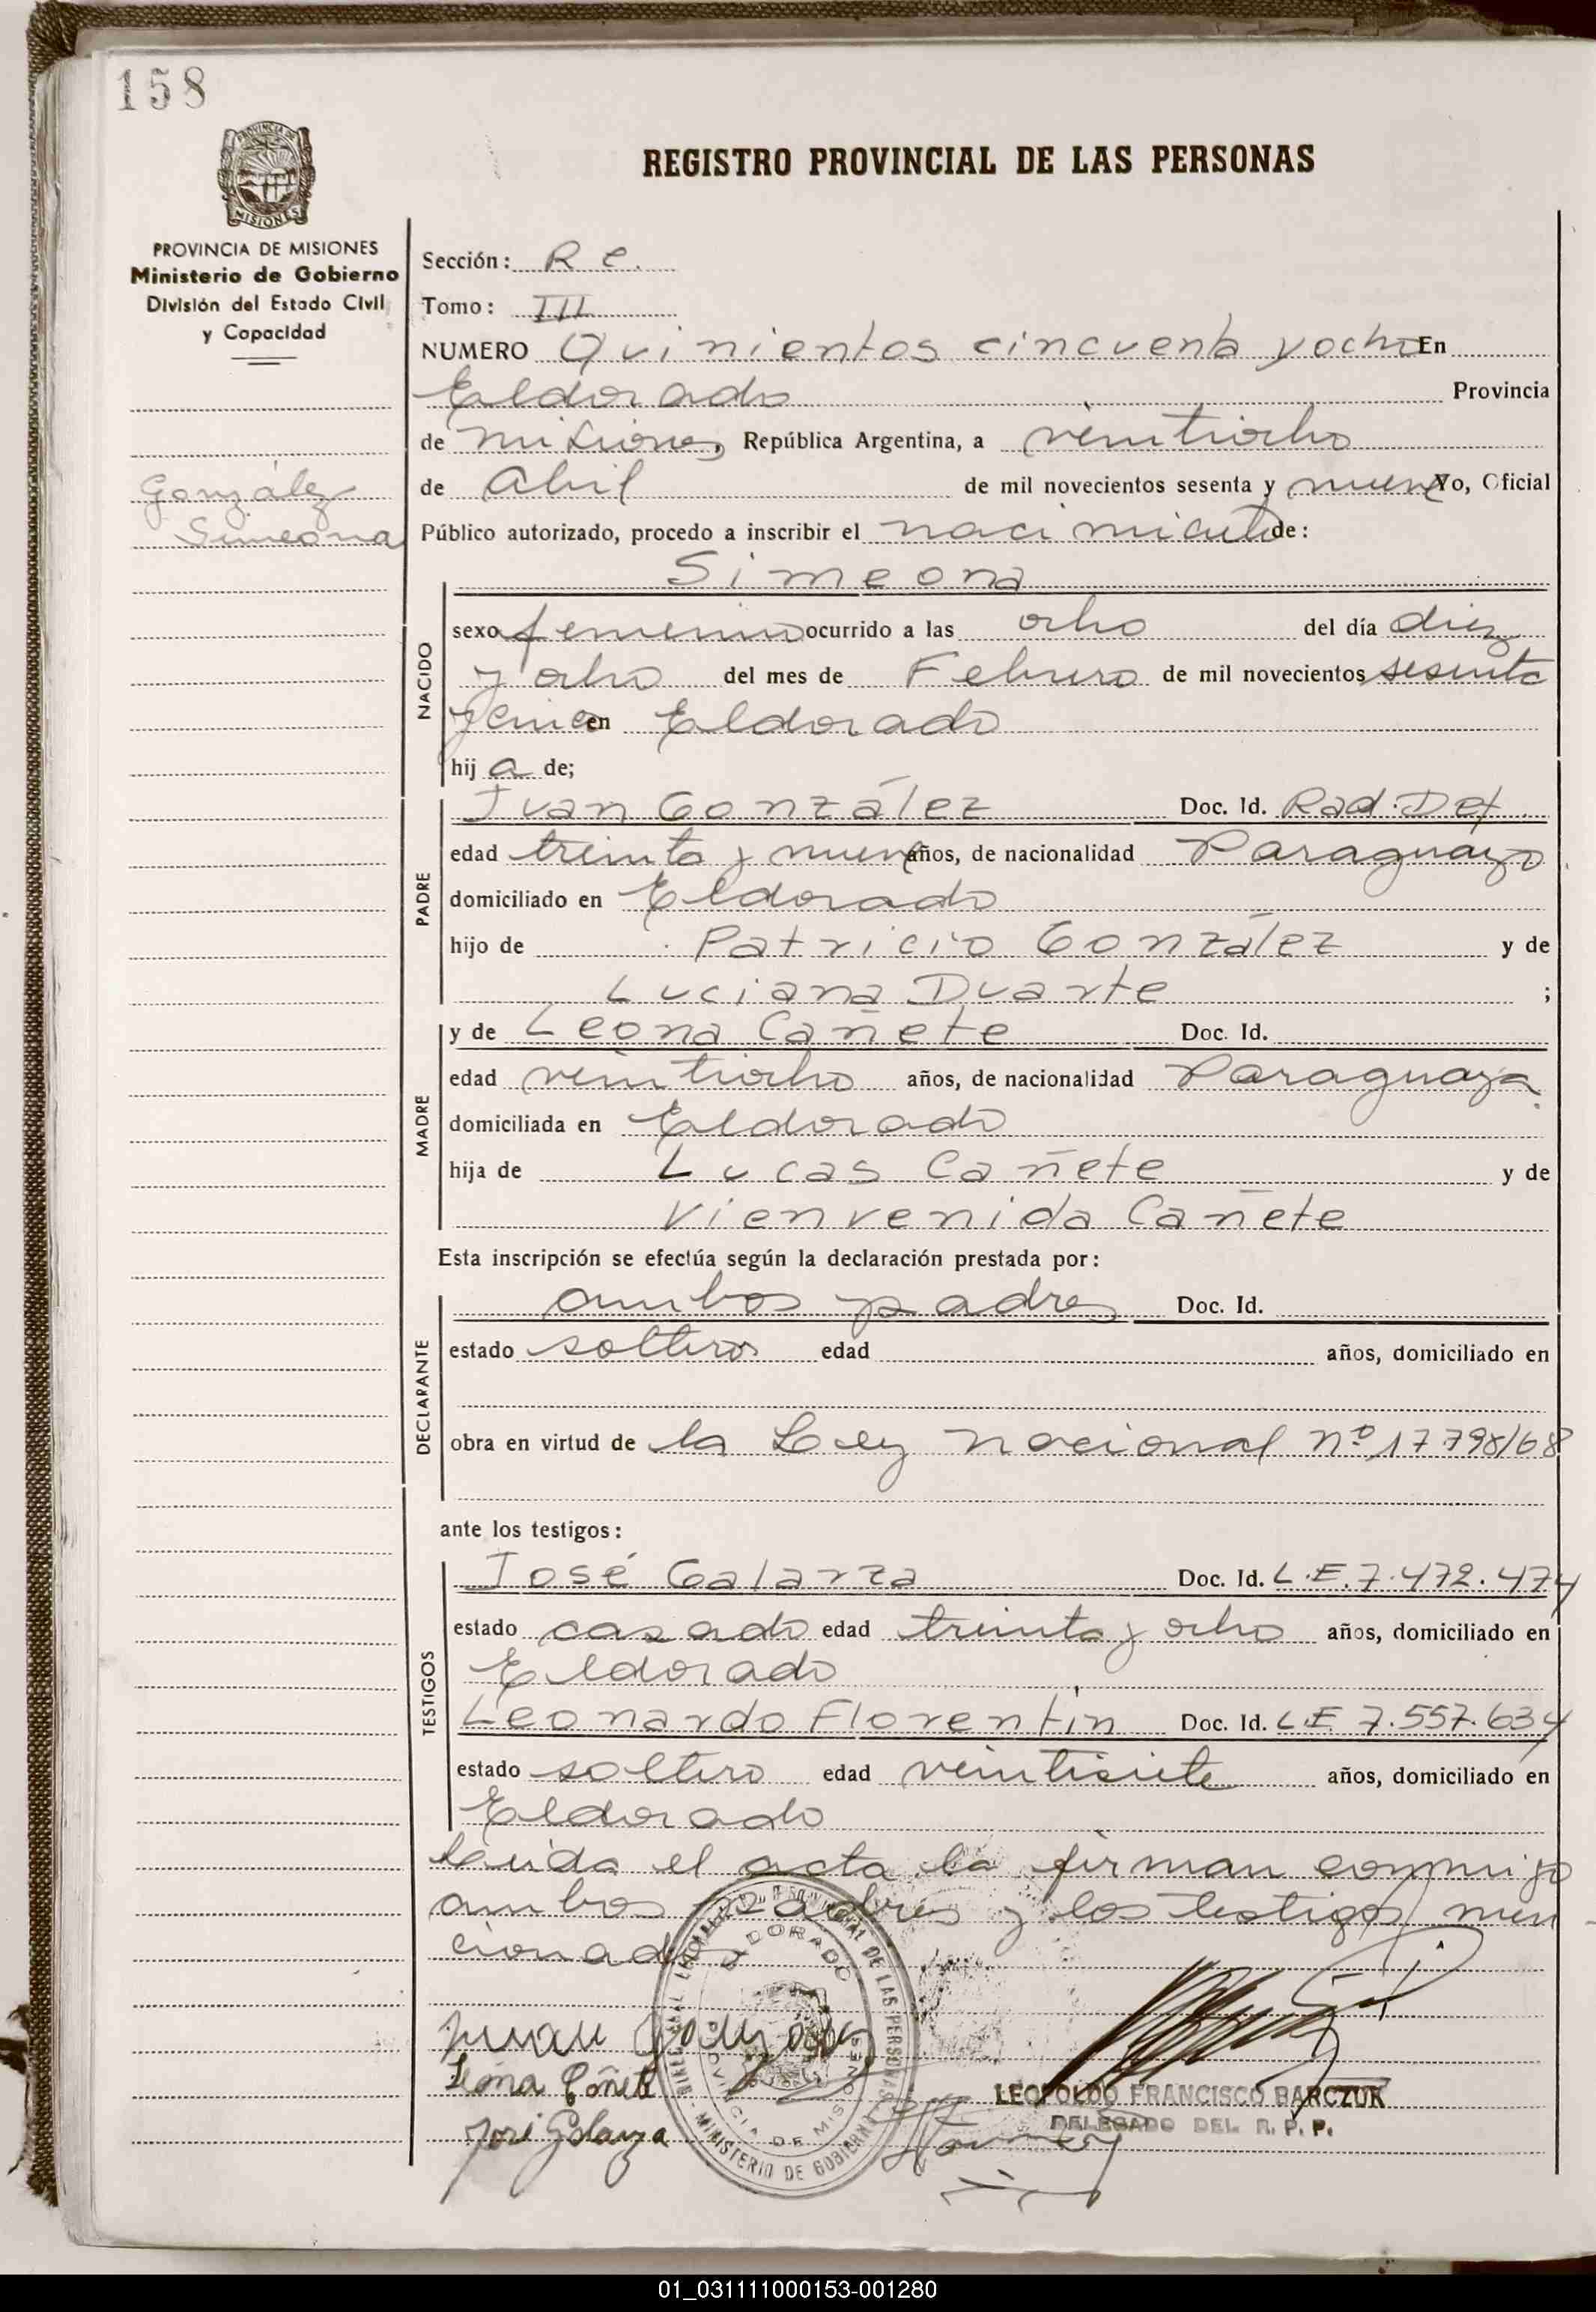 158
PROVINCIA DE MISIONES
REGISTRO PROVINCIAL DE LAS PERSONAS
PROVINCIA DE MISIONES
Ministerio de Gobierno
División del Estado Civil
y Capacidad
González
Simeona
Sección: R e.
Tomo: III
NUMERO Quinientos cincuenta y ocho En
Eldorado Provincia
de misiones, República Argentina, a veintiocho
de Abril de mil novecientos sesenta y nueve Yo, Oficial
Público autorizado, procedo a inscribir el nacimiento de:
NACIDO
Simeona
sexo femenino ocurrido a las ocho del día diez
y ocho del mes de Febrero de mil novecientos sesenta
y cinco en Eldorado
hij a de;
PADRE
Juan González Doc. Id. Rad. Def.
edad treinta y nueve años, de nacionalidad Paraguayo
domiciliado en Eldorado
hijo de Patricio González y de
Luciana Duarte ;
MADRE
y de Leona Cañete Doc. Id.
edad veintiocho años, de nacionalidad Paraguaya
domiciliada en Eldorado
hija de Lucas Cañete y de
Vienvenida Cañete
Esta inscripción se efectúa según la declaración prestada por:
DECLARANTE
ambos padres Doc. Id.
estado solteros edad años, domiciliado en
obra en virtud de la Ley nacional nº 17798/68
ante los testigos:
TESTIGOS
José Galarza Doc. Id. L.E. 7.472.474
estado casado edad treinta y ocho años, domiciliado en
Eldorado
Leonardo Florentín Doc. Id. L.E 7.557.634
estado soltero edad veintisiete años, domiciliado en
Eldorado
Leida el acta la firman conmigo
ambos padres y los testigos men
cionados
Juan Gonzalez
Leona Cañete
José Galarza
DORADO
PROVINCIA DE MISIONES
MINISTERIO DE GOBIERNO
LEOPOLDO FRANCISCO BARCZUK
DELEGADO DEL R. P. P.
01_031111000153-001280